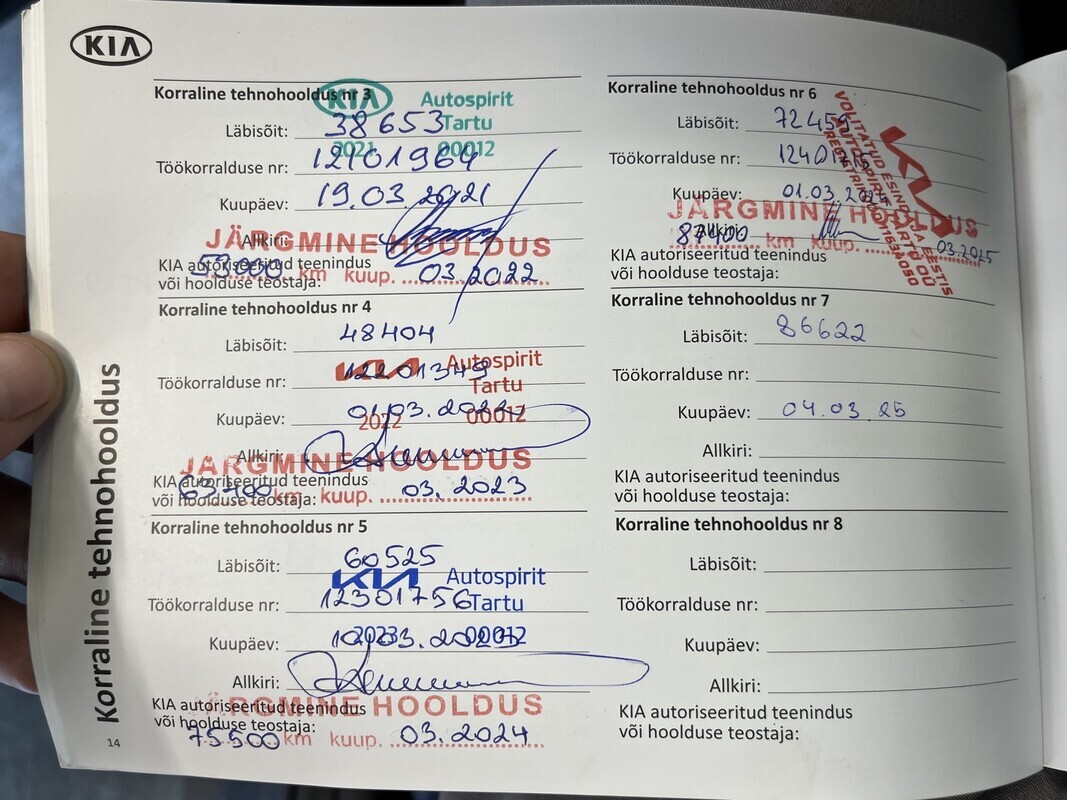 KIA
Korraline tehnohooldus nr 3
KIA Autospirit
Läbisõit: 38 653 Tartu
2021 00012
Töökorralduse nr: 12101964
Kuupäev: 19.03.2021
Allkiri:
JÄRGMINE HOOLDUS
KIA autoriseeritud teenindus
km kuup. 03.2022
või hoolduse teostaja:
Korraline tehnohooldus nr 4
Läbisõit: 48404
KIA Autospirit
Töökorralduse nr: 12201349 Tartu
Kuupäev: 01.03.2022
2022 00012
Allkiri:
JÄRGMINE HOOLDUS
KIA autoriseeritud teenindus
63400 km kuup. 03. 2023
või hoolduse teostaja:
Korraline tehnohooldus nr 5
Läbisõit: 60525
KIA Autospirit
Töökorralduse nr: 12301756 Tartu
Kuupäev:
2023 00012
Allkiri:
JÄRGMINE HOOLDUS
KIA autoriseeritud teenindus
või hoolduse teostaja:
75500 km kuup. 03.2024
Korraline tehnohooldus nr 6
Läbisõit: 72459
Töökorralduse nr:
Kuupäev: 01.03.2024
KIA
VOLITATUD ESINDAJA EESTIS
AUTOSPIRIT TARTU OÜ
JÄRGMINE HOOLDUS
Allkiri:
87400 km kuup. 03.2025
KIA autoriseeritud teenindus
või hoolduse teostaja:
Korraline tehnohooldus nr 7
Läbisõit: 86622
Töökorralduse nr:
Kuupäev: 04.03.25
Allkiri:
KIA autoriseeritud teenindus
või hoolduse teostaja:
Korraline tehnohooldus nr 8
Läbisõit:
Töökorralduse nr:
Kuupäev:
Allkiri:
KIA autoriseeritud teenindus
või hoolduse teostaja:
Korraline tehnohooldus
14